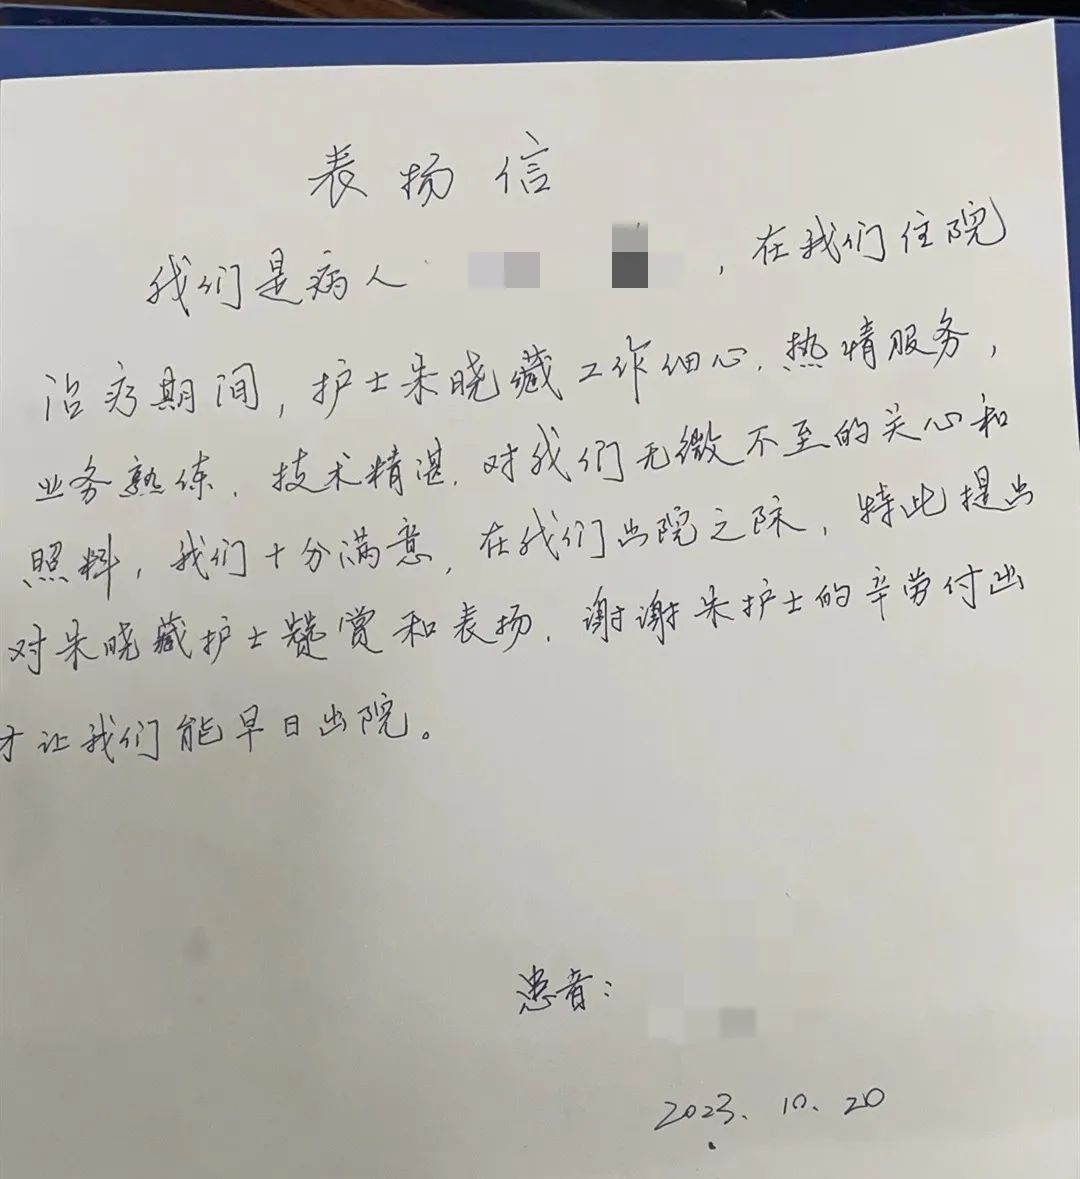 表扬信
我们是病人 ，在我们住院
治疗期间，护士朱晓藏工作细心.热情服务，
业务熟练.技术精湛.对我们无微不至的关心和
照料，我们十分满意，在我们出院之际，特此提出
对朱晓藏护士赞赏和表扬.谢谢朱护士的辛劳付出
才让我们能早日出院。
患者：
2023.10.20